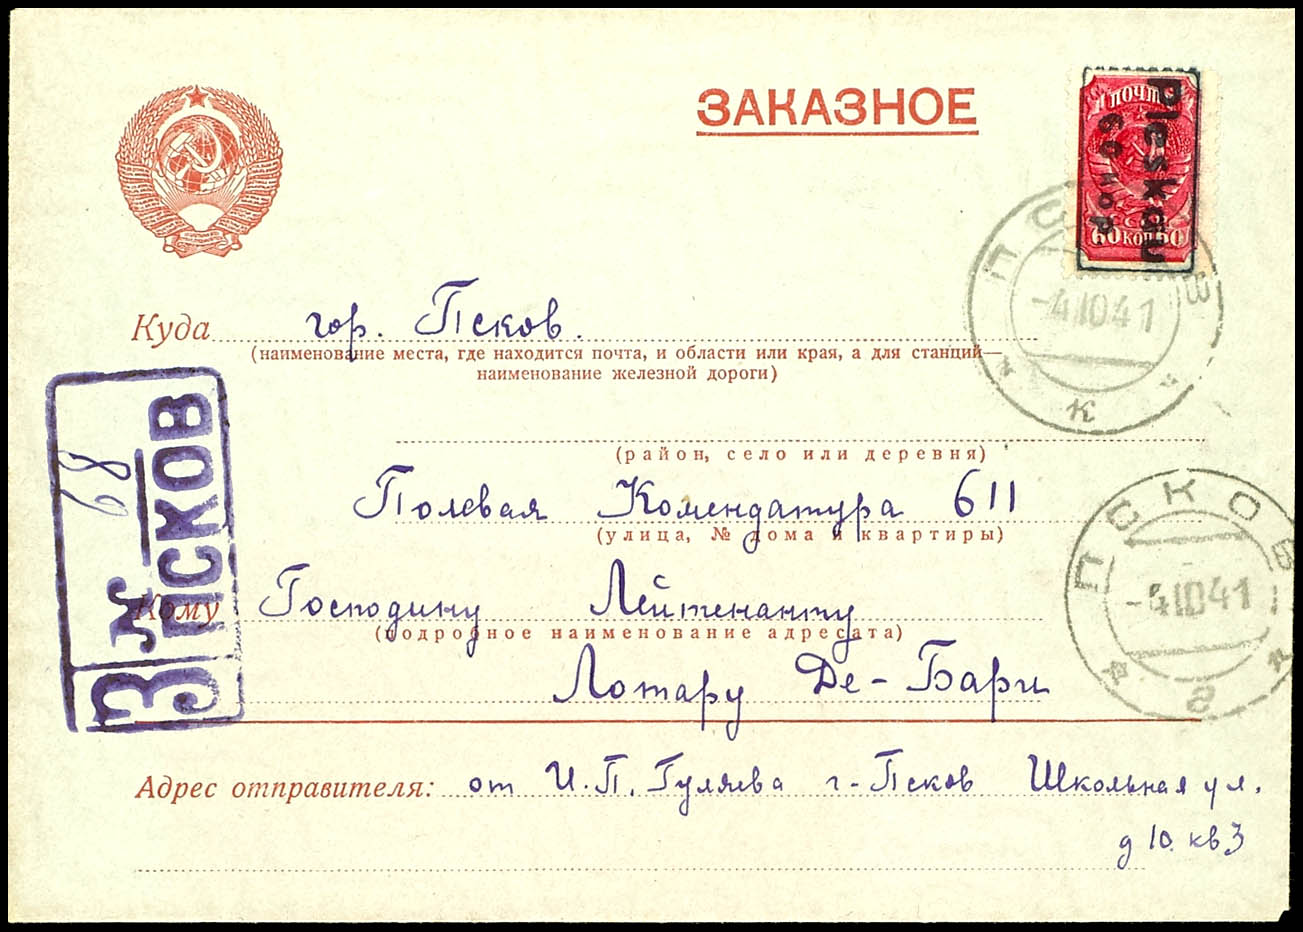 ЗАКАЗНОЕ
ПОЧТА
Pleskau
60 коп
СССР
60 коп 60
ПСКОВ
-4.10.41
к
Куда гор. Псков.
(наименование места, где находится почта, и области или края, а для станций—
наименование железной дороги)
(район, село или деревня)
Полевая Комендатура 611
(улица, № дома и квартиры)
ПСКОВ
-4.10.41
г
З ПСКОВ
№ 68
Кому Господину Лейтенанту
(подробное наименование адресата)
Лотару Де-Бари
Адрес отправителя: от И.П. Гуляева г-Псков Школьная ул.
д 10. кв 3